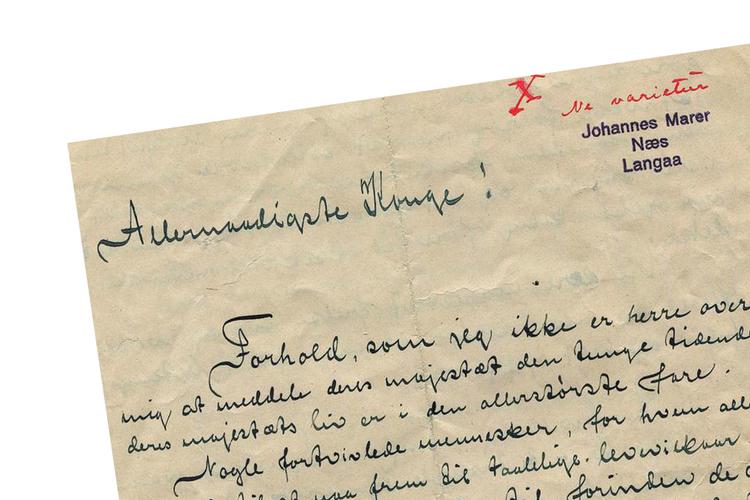 X Ne varietur
Johannes Marer
Næs
Langaa
Allernaadigste Konge!
Forhold, som jeg ikke er herre over
mig at meddele deres majestæt den tunge tidende
deres majestæts liv er i den allerstörste fare.
Nogle fortvivlede mennesker, for hvem all
frem til taalelige levevilkaar
til forinden de